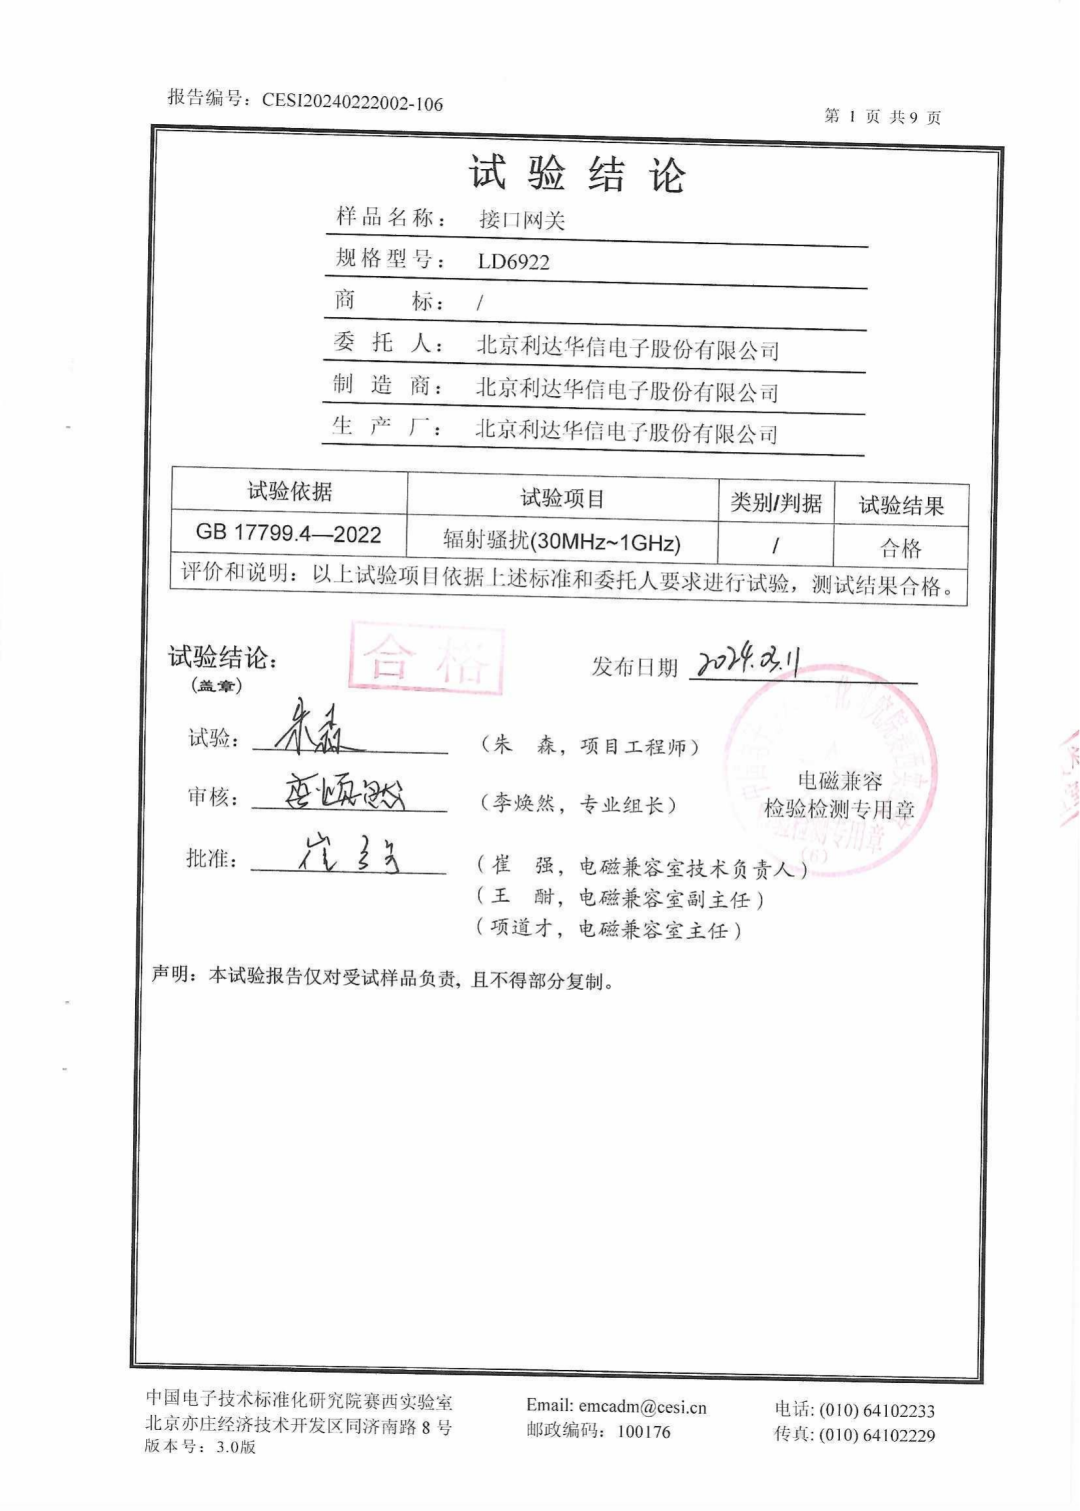 报告编号：CESI20240222002-106
第 1 页 共 9 页
试验结论
样品名称： 接口网关
规格型号： LD6922
商 标： /
委 托 人： 北京利达华信电子股份有限公司
制 造 商： 北京利达华信电子股份有限公司
生 产 厂： 北京利达华信电子股份有限公司
试验依据 试验项目 类别/判据 试验结果
GB 17799.4—2022 辐射骚扰(30MHz~1GHz) / 合格
评价和说明：以上试验项目依据上述标准和委托人要求进行试验，测试结果合格。
试验结论： 合格 发布日期 2024.03.11
(盖章)
试验： 朱森 （朱 森，项目工程师）
审核： 李焕然 （李焕然，专业组长）
批准： 崔强 （崔 强，电磁兼容室技术负责人）
（王 酣，电磁兼容室副主任）
（项道才，电磁兼容室主任）
电磁兼容
检验检测专用章
声明：本试验报告仅对受试样品负责，且不得部分复制。
中国电子技术标准化研究院赛西实验室 Email: emcadm@cesi.cn 电话: (010) 64102233
北京亦庄经济技术开发区同济南路 8 号 邮政编码：100176 传真: (010) 64102229
版本号：3.0版